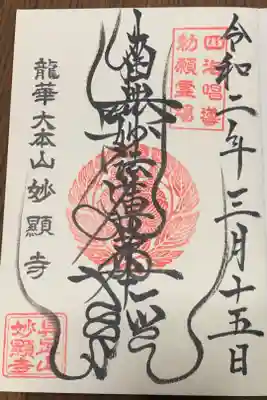 令和二年三月十五日
四海唱導
勅願霊場
南無妙法蓮華経
龍華大本山 妙顯寺
具足山
妙顕寺